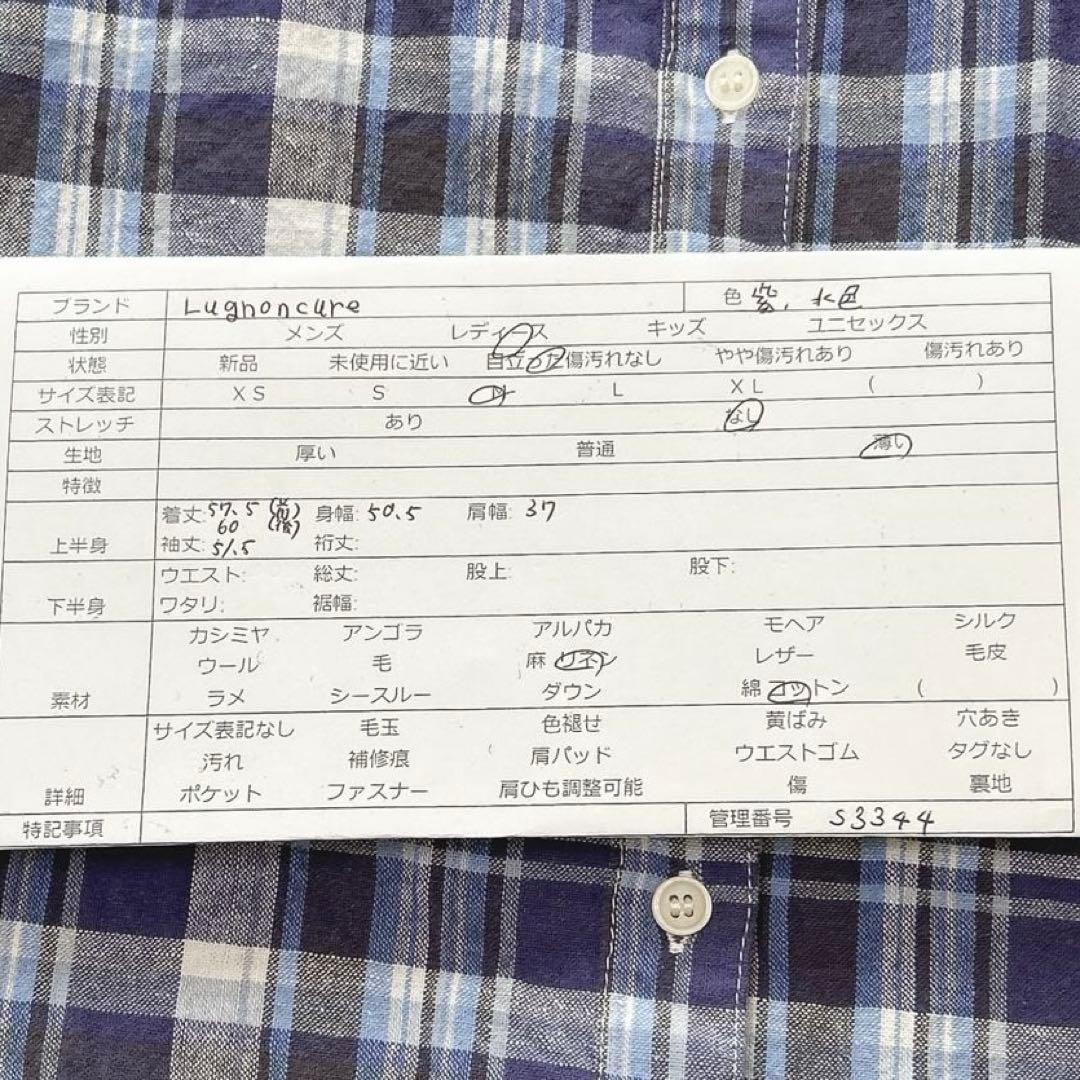 ブランド Lugnoncure 色 紫、水色
性別 メンズ レディース キッズ ユニセックス
状態 新品 未使用に近い 目立った傷汚れなし やや傷汚れあり 傷汚れあり
サイズ表記 XS S M L XL ( )
ストレッチ あり なし
生地 厚い 普通 薄い
特徴
上半身 着丈:57.5 (前) 身幅: 50.5 肩幅: 37
60 (後)
袖丈: 51.5 裄丈:
下半身 ウエスト: 総丈: 股上: 股下:
ワタリ: 裾幅:
素材 カシミヤ アンゴラ アルパカ モヘア シルク
ウール 毛 麻 リネン レザー 毛皮
ラメ シースルー ダウン 綿 コットン ( )
詳細 サイズ表記なし 毛玉 色褪せ 黄ばみ 穴あき
汚れ 補修痕 肩パッド ウエストゴム タグなし
ポケット ファスナー 肩ひも調整可能 傷 裏地
特記事項 管理番号 S3344